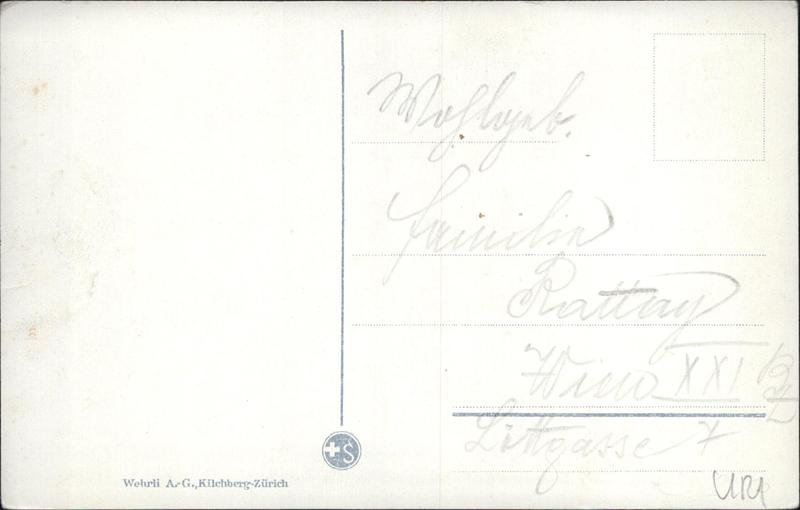 Wohlgeb.
Familie
Rattay
Wien XXI
gasse 7
Wehrli A.-G., Kilchberg-Zürich